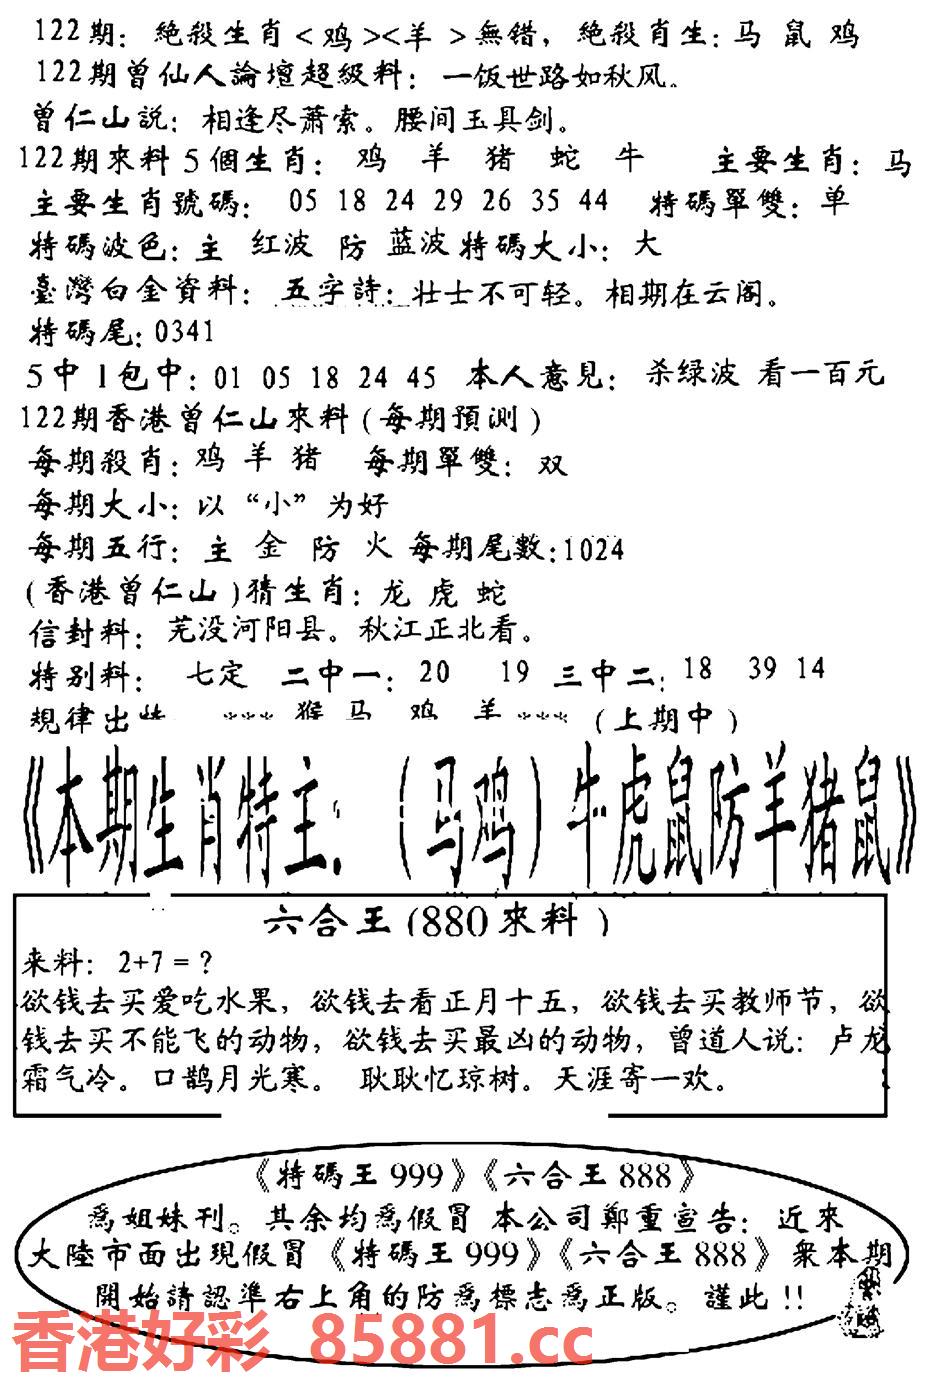 122期：絶殺生肖<鸡><羊>無错，絶殺肖生：马 鼠 鸡
122期曾仙人論壇超級料：一饭世路如秋风。
曾仁山説：相逢尽萧索。腰间玉具剑。
122期來料5個生肖：鸡 羊 猪 蛇 牛 主要生肖：马
主要生肖號碼：05 18 24 29 26 35 44 特碼單雙：单
特碼波色：主 红波 防 蓝波 特碼大小：大
臺灣白金資料：五字詩：壮士不可轻。相期在云阁。
特碼尾：0341
5中1包中：01 05 18 24 45 本人意見：杀绿波 看一百元
122期香港曾仁山來料(每期預测)
每期殺肖：鸡 羊 猪 每期單雙：双
每期大小：以“小”为好
每期五行：主 金 防 火 每期尾數：1024
(香港曾仁山)猜生肖：龙 虎 蛇
信封料：芜没河阳县。秋江正北看。
特别料：七定 二中一：20 19 三中二：18 39 14
規律出特： *** 猴 马 鸡 羊 *** (上期中)
《本期生肖特主：(马鸡)牛虎鼠防羊猪鼠》
六合王(880來料)
来料：2+7=？
欲钱去买爱吃水果，欲钱去看正月十五，欲钱去买教师节，欲
钱去买不能飞的动物，欲钱去买最凶的动物，曾道人说：卢龙
霜气冷。口鹊月光寒。 耿耿忆琼树。天涯寄一欢。
《特碼王999》《六合王888》
爲姐妹刊。其余均爲假冒 本公司鄭重宣告：近來
大陸市面出現假冒《特碼王999》《六合王888》衆本期
開始請認準右上角的防爲標志爲正版。謹此!!
香港好彩 85881.cc